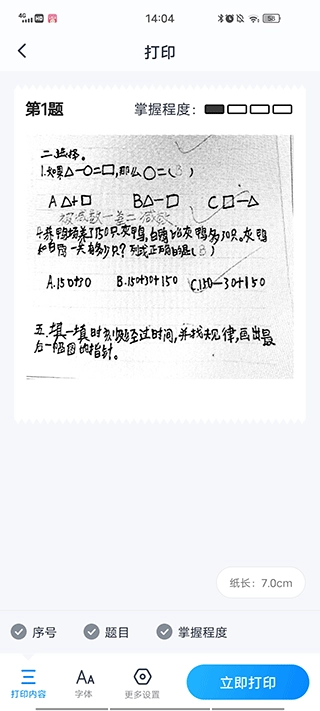 4G HD 14:04 58
打印
第1题 掌握程度:
二.选择。
1.如果△-○=□,那么○=(B)
A △+□ B△-□ C □-△
被减数-差=减数
4.养鸭场养了150只灰鸭,白鸭比灰鸭多30只。灰鸭
和白鸭一共有多少只?列式正确的是(B)
A.150+30 B.150+30+150 C.150-30+150
五.填一填时刻及经过时间,并找规律,画出最
后一幅图的指针。
纸长:7.0cm
序号 题目 掌握程度
打印内容 字体 更多设置 立即打印